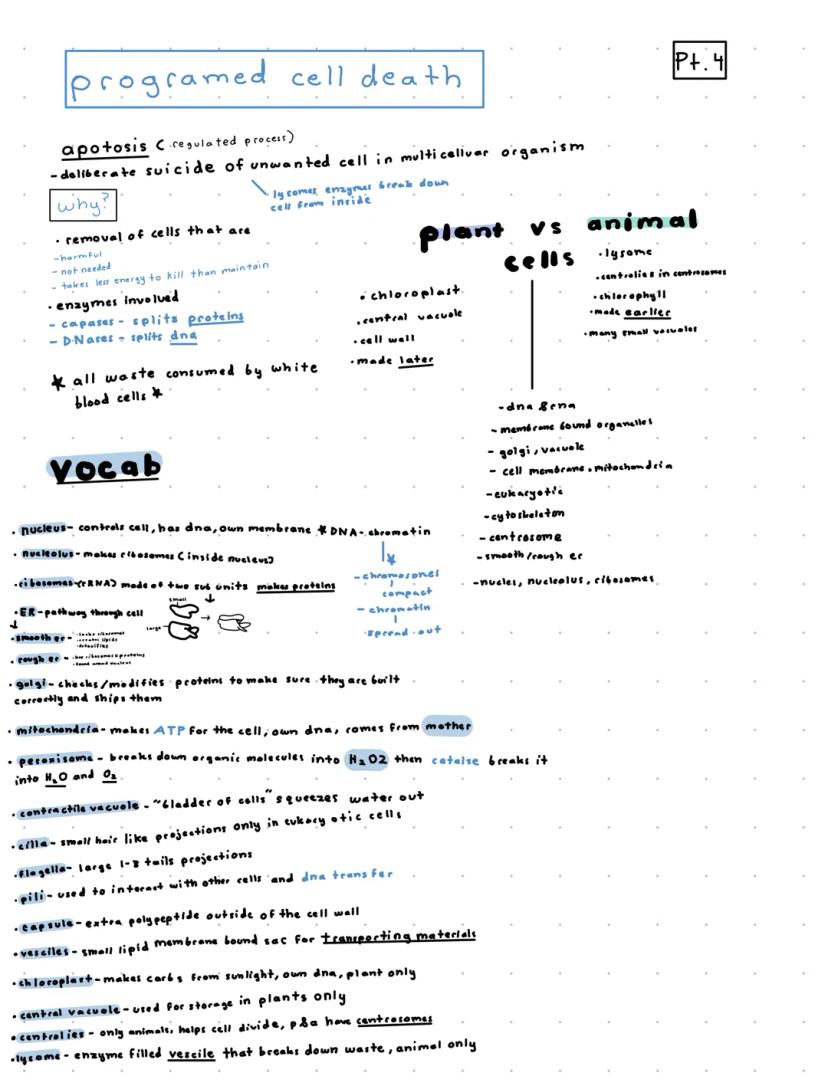 programed cell death
Pt. 4
apotosis ( regulated process)
- deliberate suicide of unwanted cell in multicelluar organism
lysomes, enzymes break down
cell from inside
why?
• removal of cells that are
- harmful
- not needed
- takes less energy to kill than maintain
• enzymes involved
- capases - splits proteins
- DNases - splits dna
* all waste consumed by white
blood cells *
plant vs animal
cells
• chloroplast
• central vacuole
• cell wall
• made later
• lysome
• centrolies in centrosomes
• chlorophyll
• made earlier
• many small vacuoles
- dna & rna
- membrane bound organelles
- golgi, vacuole
- cell membrane, mitochondria
- eukaryotic
- cytoskeleton
- centrosome
- smooth/rough er
- nucles, nucleolus, ribosomes
Vocab
• nucleus - controls cell, has dna, own membrane * DNA - chromatin
• nucleolus - makes ribosomes (inside nucleus)
• ribosomes (rRNA) made of two sub units makes proteins
- chromosones
compact
- chromatin
spread out
• ER - pathway through cell
small
large
• smooth er - - lacks ribosomes
- creates lipids
- detoxifies
• rough er - - has ribosomes & proteins
- found around nucleus
• golgi - checks/modifies proteins to make sure they are built
correctly and ships them
• mitochondria - makes ATP for the cell, own dna, comes from mother
• peroxisome - breaks down organic molecules into H2O2 then catalse breaks it
into H2O and O2
• contractile vacuole - "bladder of cells" squeezes water out
• cilla - small hair like projections only in eukaryotic cells
• flagella - large 1-3 tails projections
• pili - used to interact with other cells and dna transfer
• capsule - extra polypeptide outside of the cell wall
• vesciles - small lipid membrane bound sac for transporting materials
• chloroplast - makes carbs from sunlight, own dna, plant only
• central vacuole - used for storage in plants only
• centrolies - only animals, helps cell divide, p&a have centrosomes
• lysome - enzyme filled vescile that breaks down waste, animal only